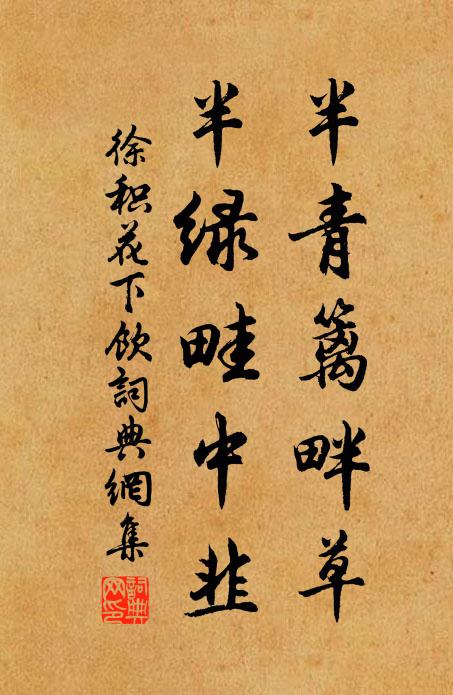 半青籬畔草
半绿畦中韭
徐积花下飲詞典網集
詞典网印